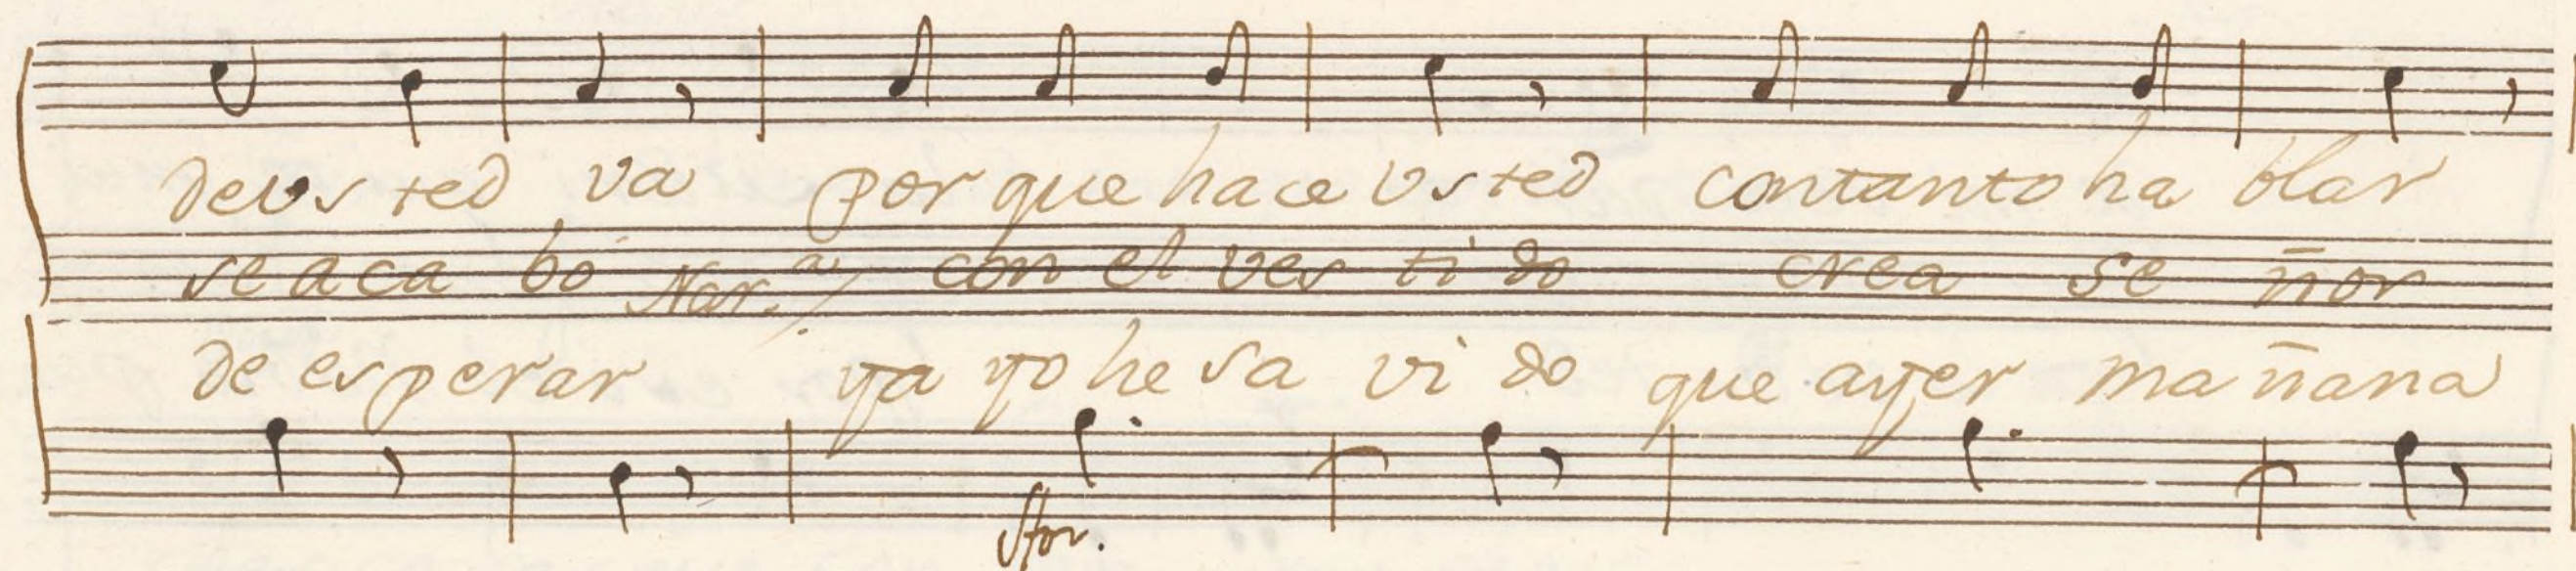 deus ted va por que hace us ted contanto ha blar
se a ca bó Nar.ª con el ves ti do crea se ñor
de esperar ya yo he sa vi do que ayer mañana